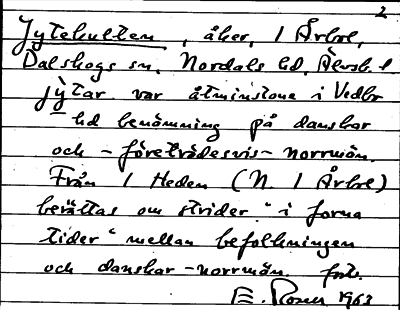 2
Jytekulten, åker, 1 Årbol,
Dalskogs sn, Nordals hd, Älvsb. l
jytar var åtminstone i Vedbo
hd benämning på danskar
och – företrädesvis – norrmän.
Från 1 Heden (N. 1 Årbol)
berättas om strider "i forna
tider" mellan befolkningen
och danskar – norrmän. forts.
E. Rosen 1963